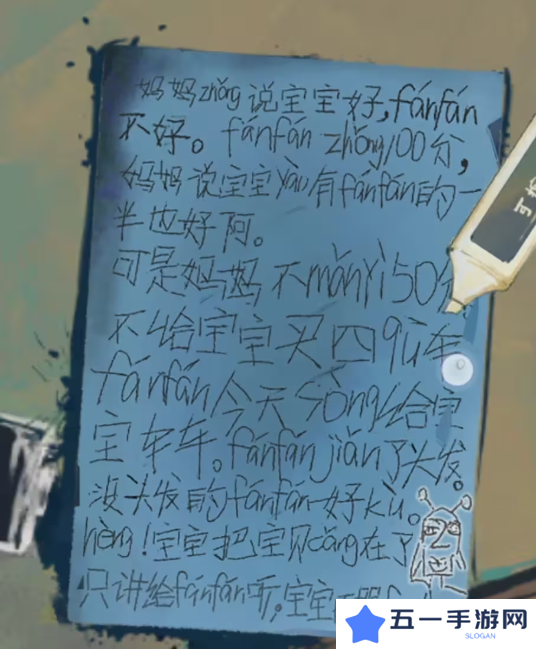 妈妈zhǒng说宝宝好,fánfán
不好。fánfán zhǒng100分,
妈妈说宝宝yào有fánfán的一
半也好阿。
可是妈妈不mǎnyì50分
不给宝宝买四qū车
fánfán今天sòng给宝
宝车车。fánfán jiǎn了头发。
没头发的fánfán一好kù。
hèng!宝宝把宝贝cáng在了
只讲给fánfán听,宝宝
五一手游网
SLOGAN